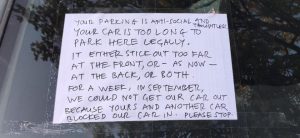 YOUR PARKING IS ANTI-SOCIAL AND
YOUR CAR IS TOO LONG TO
PARK HERE LEGALLY.
IT EITHER STICK OUT TOO FAR
AT THE FRONT, OR - AS NOW -
AT THE BACK, OR BOTH.
FOR A WEEK, IN SEPTEMBER,
WE COULD NOT GET OUR CAR OUT
BECAUSE YOURS AND ANOTHER CAR
BLOCKED OUR CAR IN. PLEASE STOP.